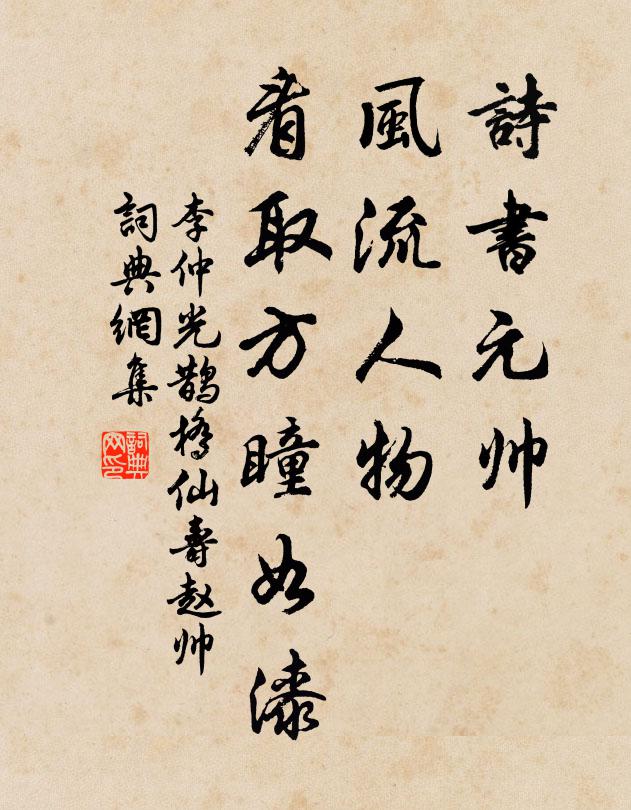 詩書元帅
風流人物
看取方瞳如漆
李仲光鵲橋仙壽赵帅
詞典網集
詞典网印